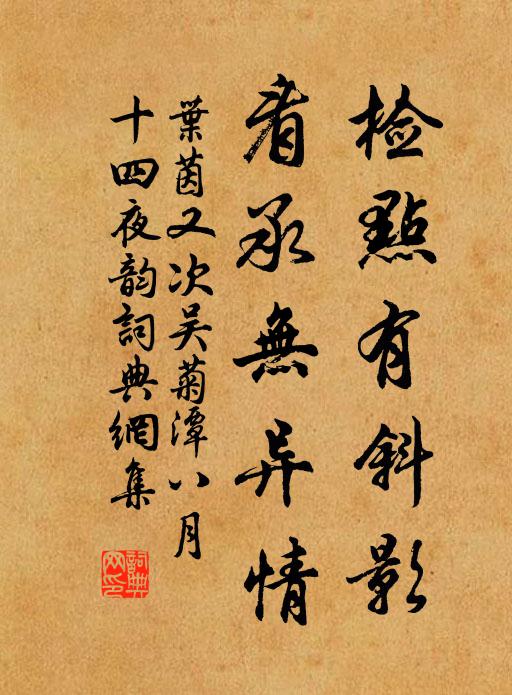 检點有斜影
看承無异情
葉茵又次吴菊潭八月
十四夜韵詞典網集
詞典
网印